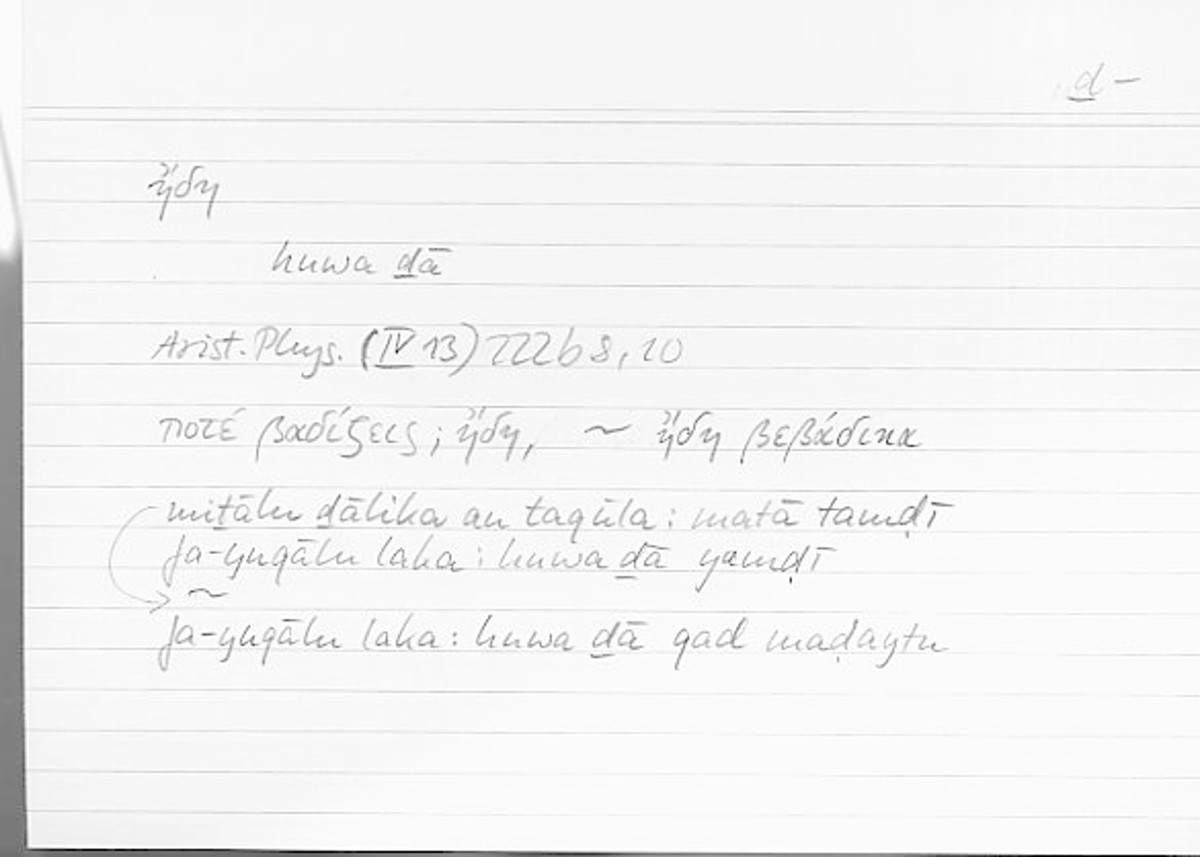 ḏ —
ἤδη
huwa ḏā
Arist. Phys. (IV 13) 222b8, 10
ποτέ βαδίζεις; ἤδη, ~ ἤδη βεβάδικα
miṯālu ḏālika an taqūla: matā tamḍī
fa-yuqālu laka: huwa ḏā yamḍī
~
fa-yuqālu laka: huwa ḏā qad maḍaytu